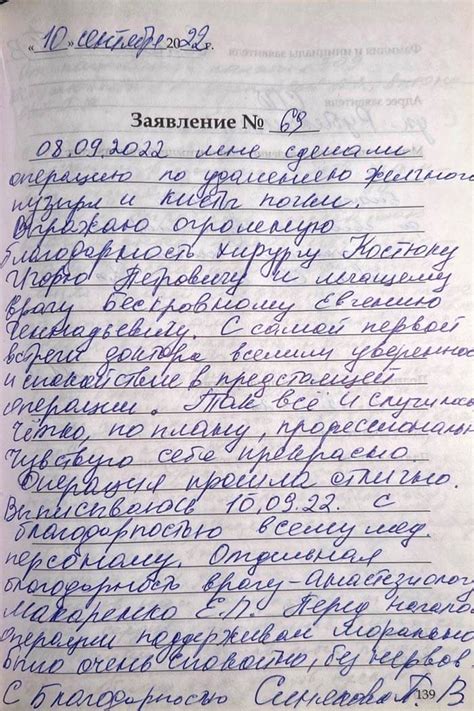 « 10 » сентября 2022 г.
Заявление № 69
08.09.2022 мне сделали
операцию по удалению желчного
пузыря и кисты почки.
Выражаю огромную
благодарность хирургу Костюку
Игорю Петровичу и лечащему
врачу Бескровному Евгению
Геннадьевичу. С самой первой
встречи доктора вселили уверенность
и спокойствие в предстоящей
операции. Так всё и случилось
Чётко, по плану, профессионально
Чувствую себя прекрасно.
Операция прошла отлично.
Выписываюсь 10.09.22. С
благодарностью всему мед.
персоналу. Отдельная
благодарность врачу-анастезиологу
Макаренко Е.П. Перед началом
операции поддерживал морально
было очень спокойно, без нервов
С благодарностью Синякова Т. В
139